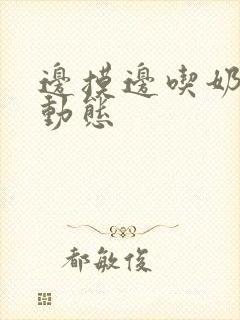 邊摸邊喫奶
動態
都敏俊